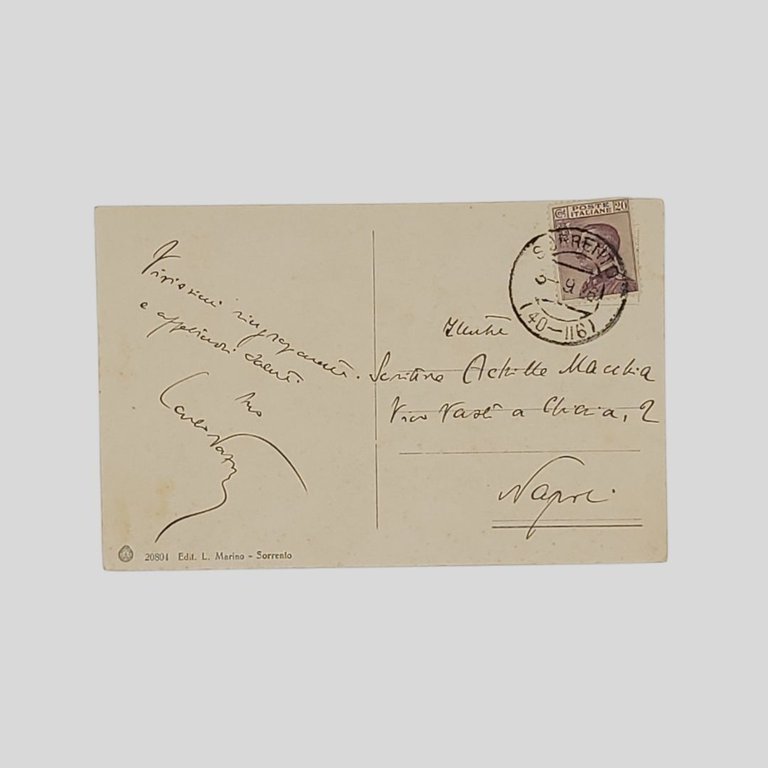 Vivissimi ringraziamenti
e affettuosi saluti.
Suo
Illustre
Scrittore Achille Macchia
Vico Vasto a Chiaia, 2
Napoli
POSTE
ITALIANE
20
SORRENTO
(40-116)
20801 Edit. L. Marino - Sorrento